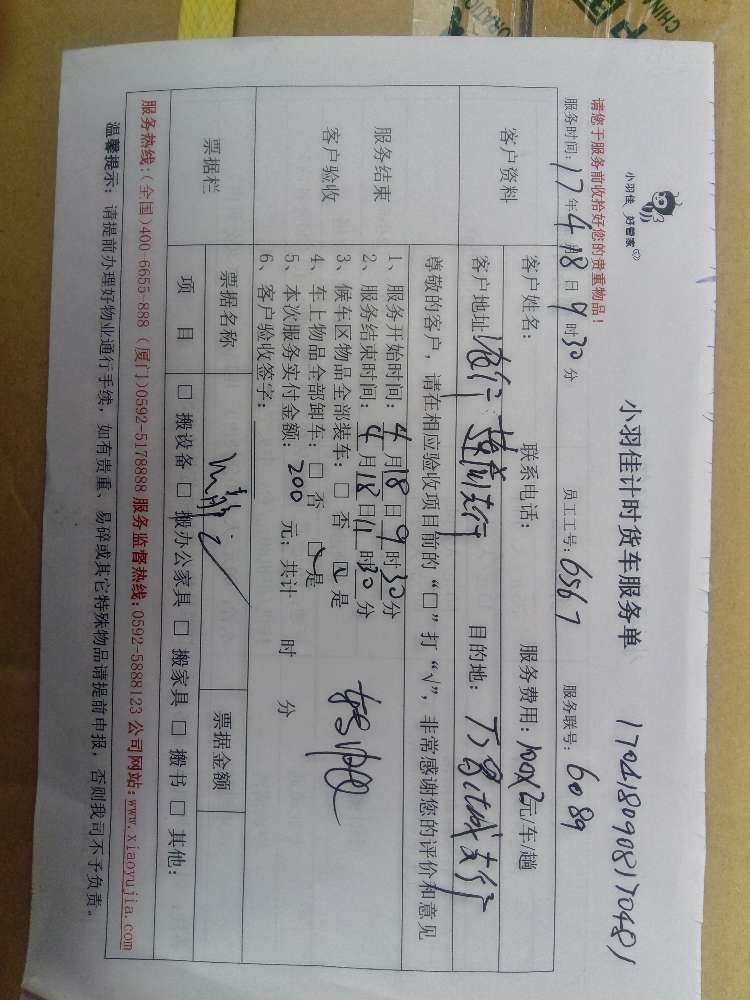 小羽佳 好管家
小羽佳计时货车服务单 1704180908170481
请您于服务前收拾好您的贵重物品！
服务时间：17年4月18日9时30分 员工工号：6567 服务联号：6089
客户资料
客户姓名： 联系电话： 服务费用：100X2元/车/趟
客户地址： 支行 目的地： 城支行
尊敬的客户，请在相应验收项目前的“□”打“√”，非常感谢您的评价和意见
服务结束
客户验收
1、服务开始时间：4月18日9时30分
2、服务结束时间：4月18日11时30分
3、候车区物品全部装车：□ 否 ☑ 是
4、车上物品全部卸车：□ 否 ☑ 是
5、本次服务实付金额：200 元；共计 时 分
6、客户验收签字：
票据栏
票据名称 票据金额
项 目 □ 搬设备 □ 搬办公家具 □ 搬家具 □ 搬书 □ 其他：
服务热线：(全国)400-6655-888 (厦门)0592-5178888 服务监督热线:0592-5888123 公司网站:www.xiaoyujia.com
温馨提示：请提前办理好物业通行手续，如有贵重、易碎或其它特殊物品请提前申报，否则我司不予负责。
中国
CHINA
ORATIO